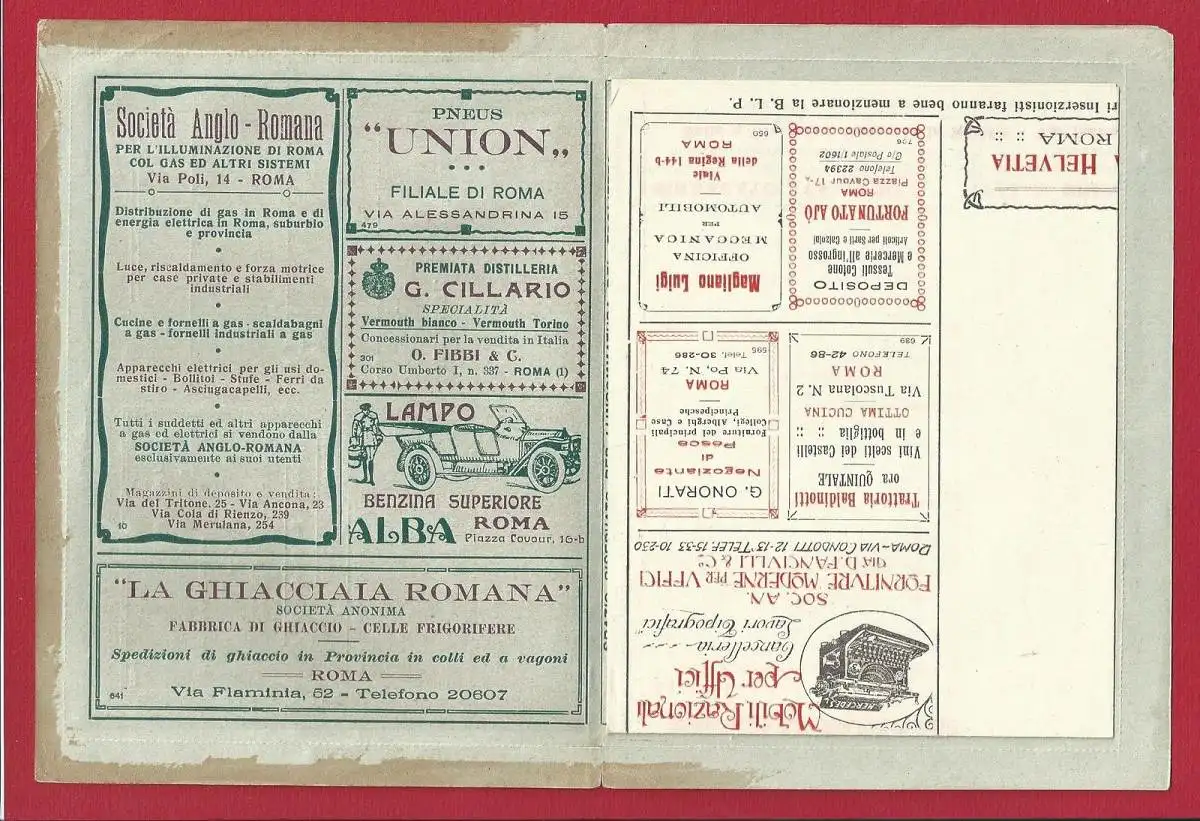 Società Anglo-Romana
PER L'ILLUMINAZIONE DI ROMA
COL GAS ED ALTRI SISTEMI
Via Poli, 14 - ROMA
Distribuzione di gas in Roma e di
energia elettrica in Roma, suburbio
e provincia
Luce, riscaldamento e forza motrice
per case private e stabilimenti
industriali
Cucine e fornelli a gas - scaldabagni
a gas - fornelli industriali a gas
Apparecchi elettrici per gli usi do-
mestici - Bollitoi - Stufe - Ferri da
stiro - Asciugacapelli, ecc.
Tutti i suddetti ed altri apparecchi
a gas ed elettrici si vendono dalla
SOCIETÀ ANGLO-ROMANA
esclusivamente ai suoi utenti
Magazzini di deposito e vendita:
Via del Tritone, 25 - Via Ancona, 23
Via Cola di Rienzo, 239
Via Merulana, 254
10
PNEUS
"UNION„
FILIALE DI ROMA
VIA ALESSANDRINA 15
479
PREMIATA DISTILLERIA
G. CILLARIO
SPECIALITÀ
Vermouth bianco - Vermouth Torino
Concessionari per la vendita in Italia
O. FIBBI & C.
301
Corso Umberto I, n. 337 - ROMA (1)
LAMPO
BENZINA SUPERIORE
ALBA ROMA
Piazza Cavour, 16-b
"LA GHIACCIAIA ROMANA"
SOCIETÀ ANONIMA
FABBRICA DI GHIACCIO - CELLE FRIGORIFERE
Spedizioni di ghiaccio in Provincia in colli ed a vagoni
ROMA
Via Flaminia, 52 - Telefono 20607
641
Mobili Razionali
per Uffici
Cancelleria
Lavori Tipografici
MERCEDES
SOC. AN.
FORNITVRE MODERNE PER VFFICI
GIÀ D. FANCIVLLI & C.
ROMA - VIA CONDOTTI 12-13 TELEF. 15-33 10-230
Trattoria Baldinotti
ora QUINTALE
Vini scelti dei Castelli
e in bottiglia :: ::
OTTIMA CUCINA
Via Tuscolana N. 2
ROMA
TELEFONO 42-86
689
G. ONORATI
Negoziante
di
Pesce
Forniture dei principali
Collegi, Alberghi e Case
Principesche
ROMA
Via Po, N. 74
Telef. 30-286
595
DEPOSITO
Tessuti Cotone
e Mercerie all'ingrosso
Articoli per Sarti e Calzolai
FORTUNATO AJÒ
ROMA
Piazza Cavour 17-a
Telefono 22394
C/o Postale 1/1602
726
Magliano Luigi
OFFICINA
MECCANICA
PER
AUTOMOBILI
Viale
della Regina 144-b
ROMA
650
HELVETIA
ROMA :: ::
ri Inserzionisti faranno bene a menzionare la B. L. P.